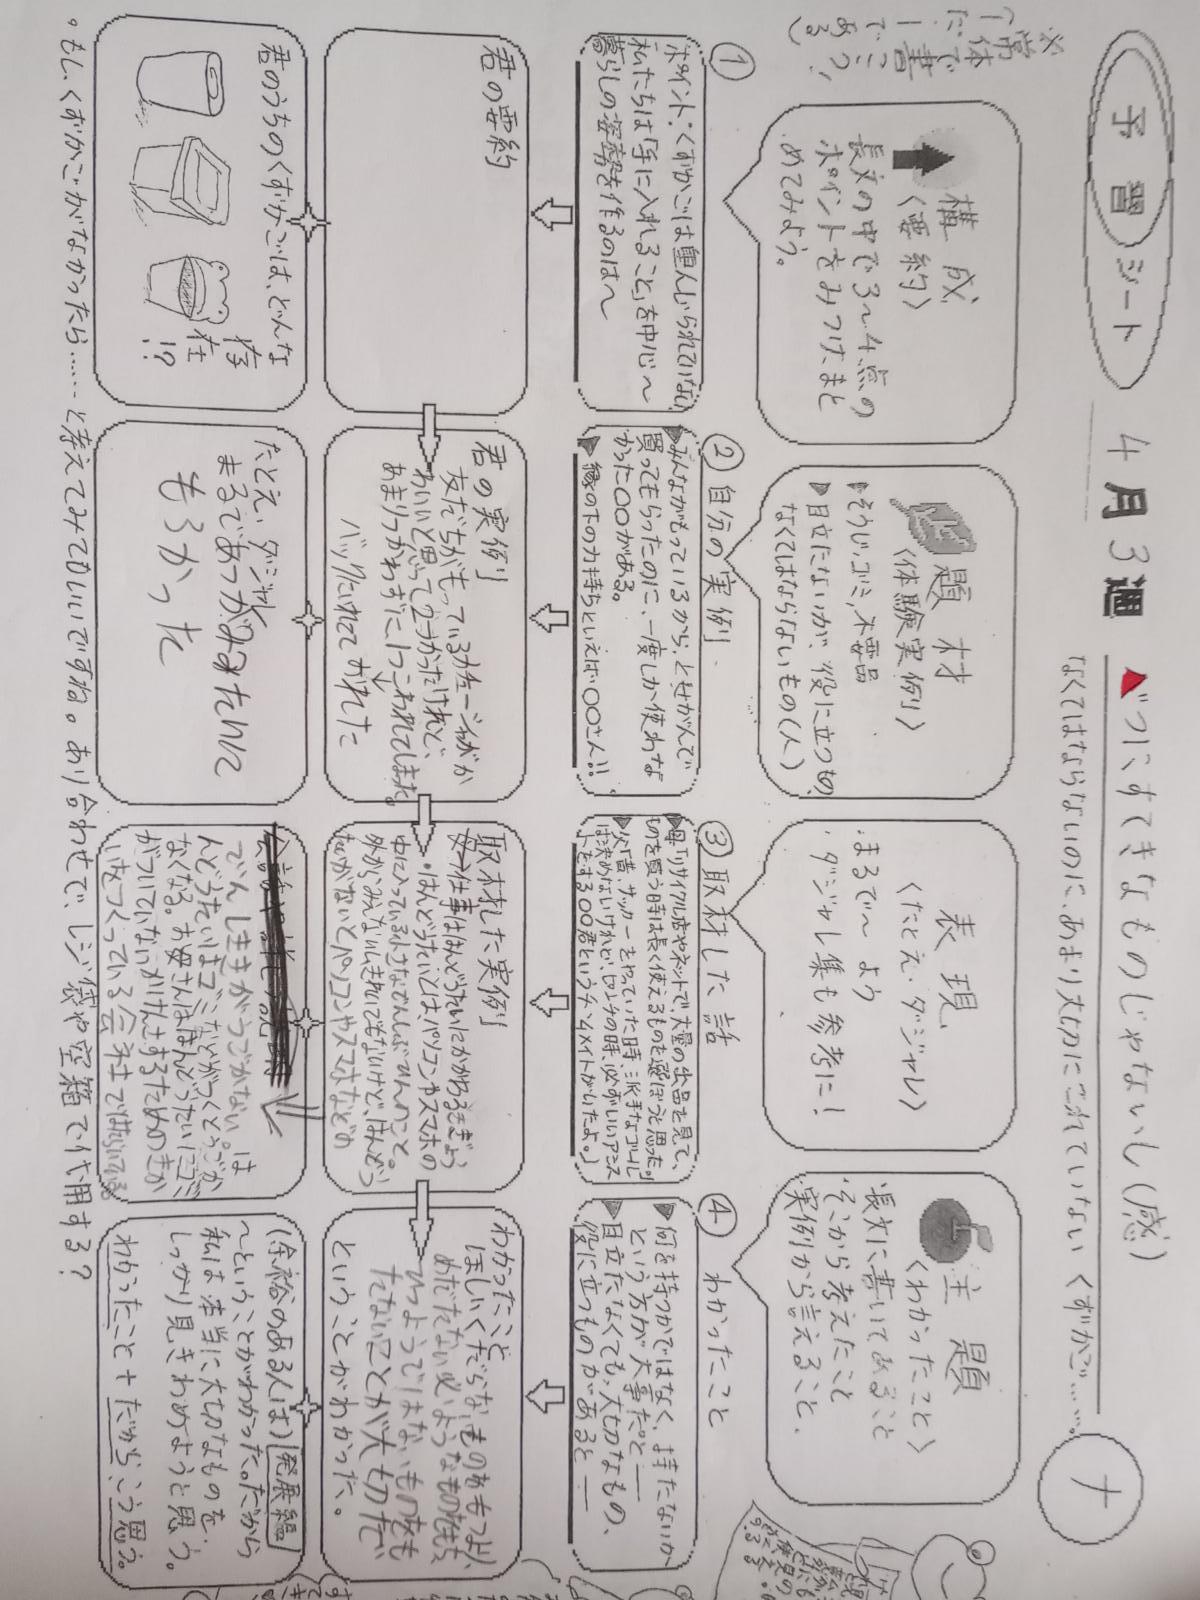 予習シート
4月3週
べつにすてきなものじゃないし（感）
なくてはならないのに、あまり大切にされていない くずかご…
ナ
※常体で書こう！
（だ・である）
構成
〈要約〉
長文の中で3〜4点の
ポイントをみつけ、まと
めてみよう。
題材
〈体験実例〉
そうじ、ゴミ、不要品
目立たないが、役に立つ物、
なくてはならないもの（人）
表現
〈たとえ・ダジャレ〉
まるで〜よう
・ダジャレ集も参考に！
主題
〈わかったこと〉
長文に書いてあること
そこから考えたこと
実例から言えること、
①
ポイント：くずかごは重んじられていない
私たちは「手に入れること」を中心〜
暮らしの姿勢を作るのは〜
②自分の実例
みんながもっているから、とせがんで
買ってもらったのに、一度しか使わな
かった〇〇がある。
縁の下の力持ちといえば〇〇さん!!
③取材した話
母「リサイクル店やネットで大量の出品を見て、
ものを買う時は長く使えるものを選ぼうと思った。」
父「昔、サッカーをやっていた時、派手なゴール
は決めないけれど、ピンチの時、必ずいいアシス
トをする〇〇君というチームメイトがいたよ。」
④わかったこと
何を持つかではなく、持たないか
という方が大事だ。と―
目立たなくても、大切なもの、
役に立つものがあると―
君の要約
君の実例
友だちがもっているカチューシャがか
わいいと思って2つかったけれど、
あまりつかわずに1つこわれてしまった。
バッグにいれてておれた
取材した実例
母→仕事ははんどうたいにかかわるさぎょう
・はんどうたいとはパソコンやスマホの
中に入っている小さなでんしぶひんのこと。
外からみえないしきれいでもないけど、はんどう
たいがないとパソコンやスマホなどの
わかったこと
ほしいくだらないものをもつより、
めだたない必ようなものをもち、
ひつようではないものをも
たないことが大切だ
ということがわかった。
君のうちのくずかごは、どんな
存在!?
たとえ・ダジャレ
まるであつがみみたいに
もろかった
でんしききがうごかない。は
んどうたいはゴミなどがつくとうごか
なくなる。お母さんははんどうたいにゴミ
がついていないかけんさするためのきか
いをつくっている会社ではたらいている
（余裕のある人は）発展編
〜ということがわかった。だから
私は本当に大切なものを、
しっかり見きわめようと思う。
わかったこと＋だからこう思う。
。もし、くずかごがなかったら……と考えてみてもいいですね。あり合わせで、レジ袋や空箱で代用する？